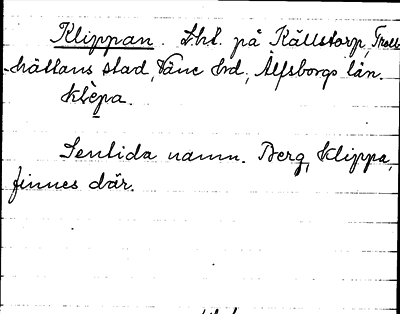 Klippan. Lht. på Källstorp, Troll-
hättans stad, Väne hrd, Älfsborgs län.
klèpa.
Sentida namn. Berg, klippa,
finnes där.